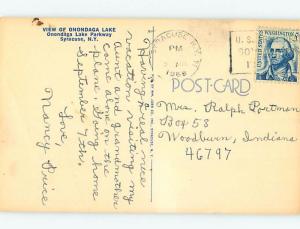 VIEW OF ONONDAGA LAKE
Onondaga Lake Parkway
Syracuse, N.Y.
Having a real nice
vacation visiting my
Aunt and Grandmother
came alone on the
plane. Going home
September 7th.
Love,
Nancy Price
SYRACUSE, N.Y.
PM
1968
POST-CARD
Mrs. Ralph Portman
Box 58
Woodburn, Indiana
46797
U.S.
5¢
WASHINGTON